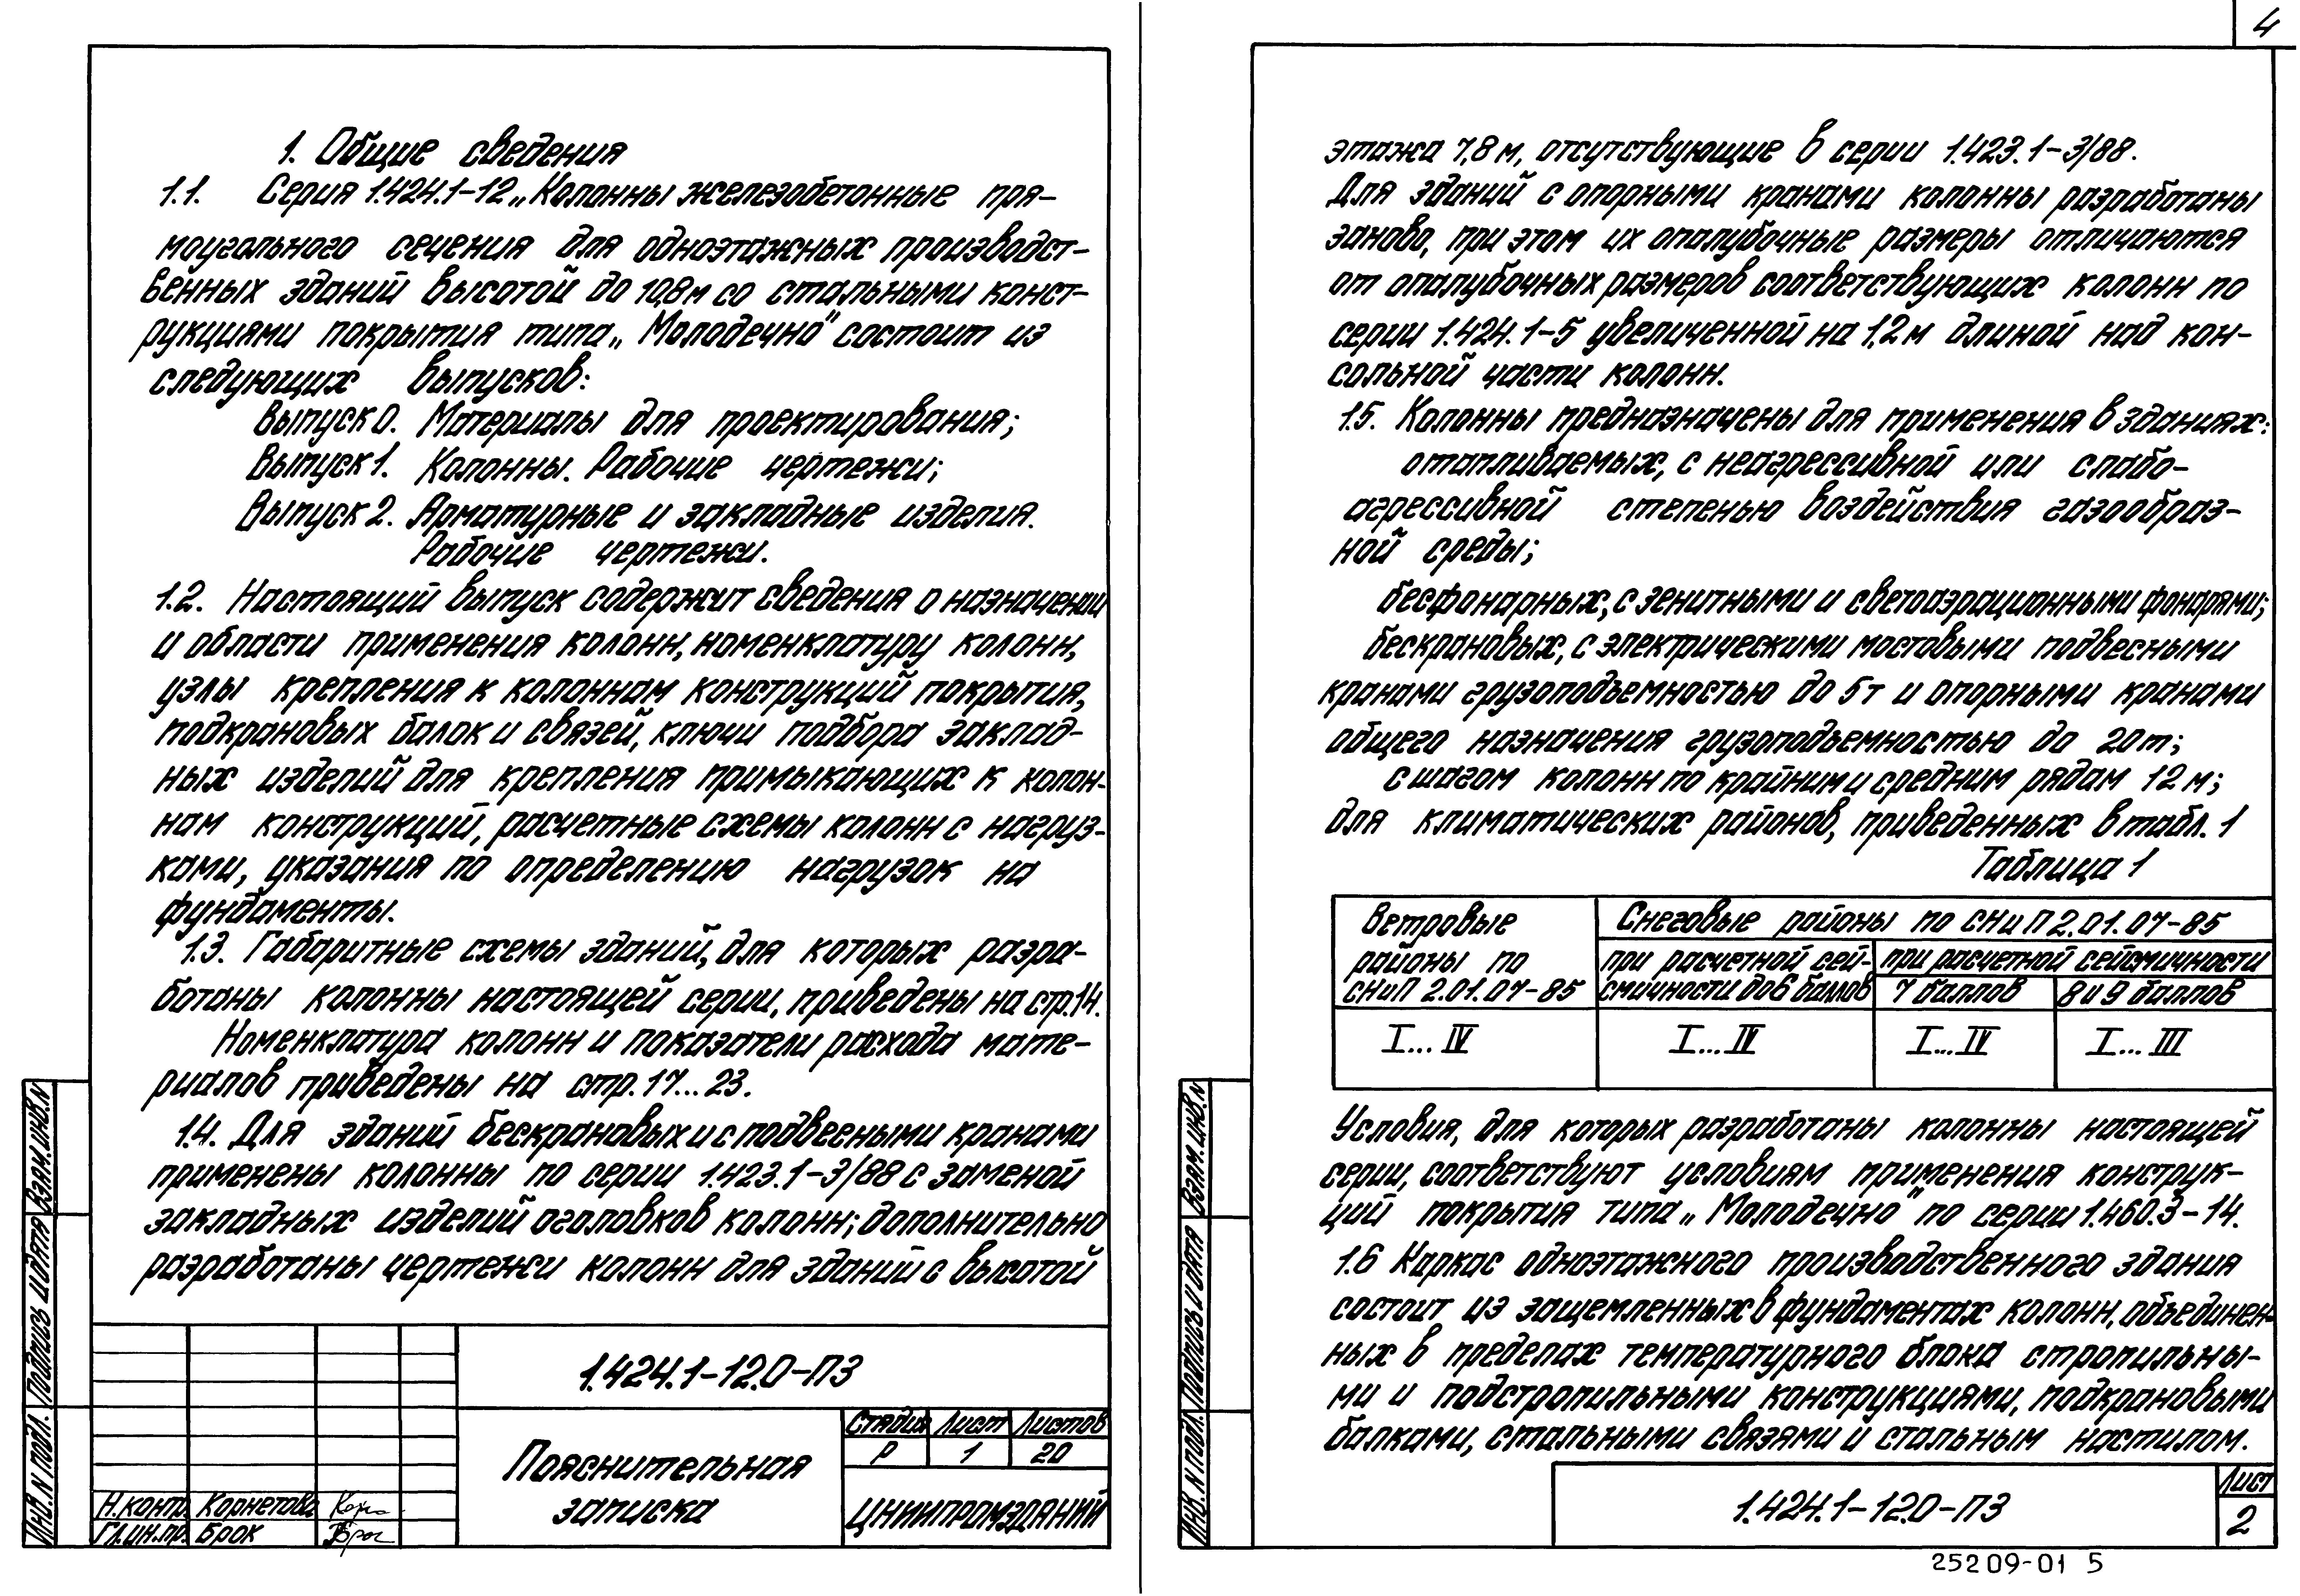 1. Общие сведения
1.1. Серия 1.424.1-12 „Колонны железобетонные пря-
моугольного сечения для одноэтажных производст-
венных зданий высотой до 10,8 м со стальными конст-
рукциями покрытия типа „Молодечно" состоит из
следующих выпусков:
Выпуск 0. Материалы для проектирования;
Выпуск 1. Колонны. Рабочие чертежи;
Выпуск 2. Арматурные и закладные изделия.
Рабочие чертежи.
1.2. Настоящий выпуск содержит сведения о назначении
и области применения колонн, номенклатуру колонн,
узлы крепления к колоннам конструкций покрытия,
подкрановых балок и связей, ключи подбора заклад-
ных изделий для крепления примыкающих к колон-
нам конструкций, расчетные схемы колонн с нагруз-
ками, указания по определению нагрузок на
фундаменты.
1.3. Габаритные схемы зданий, для которых разра-
ботаны колонны настоящей серии, приведены на стр.14.
Номенклатура колонн и показатели расхода мате-
риалов приведены на стр. 17...23.
1.4. Для зданий бескрановых и с подвесными кранами
применены колонны по серии 1.423.1-3/88 с заменой
закладных изделий оголовков колонн; дополнительно
разработаны чертежи колонн для зданий с высотой
1.424.1-12.0-ПЗ
Пояснительная
записка
Стадия Лист Листов
Р 1 20
ЦНИИПРОМЗДАНИЙ
Н.контр. Корнетова
Гл.ин.пр. Брок
Взам.инв.N
Подпись и дата
Инв.N подл.
4
этажа 7,8 м, отсутствующие в серии 1.423.1-3/88.
Для зданий с опорными кранами колонны разработаны
заново, при этом их опалубочные размеры отличаются
от опалубочных размеров соответствующих колонн по
серии 1.424.1-5 увеличенной на 1,2 м длиной над кон-
сольной части колонн.
1.5. Колонны предназначены для применения в зданиях:
отапливаемых, с неагрессивной или слабо-
агрессивной степенью воздействия газообраз-
ной среды;
бесфонарных, с зенитными и светоаэрационными фонарями;
бескрановых, с электрическими мостовыми подвесными
кранами грузоподъемностью до 5т и опорными кранами
общего назначения грузоподъемностью до 20т;
с шагом колонн по крайним и средним рядам 12 м;
для климатических районов, приведенных в табл. 1
Таблица 1
Ветровые
районы по
СНиП 2.01.07-85
Снеговые районы по СНиП 2.01.07-85
при расчетной сей-
смичности до 6 баллов
при расчетной сейсмичности
7 баллов 8 и 9 баллов
I...IV I...IV I...IV I...III
Условия, для которых разработаны колонны настоящей
серии, соответствуют условиям применения конструк-
ций покрытия типа „Молодечно" по серии 1.460.3-14.
1.6 Каркас одноэтажного производственного здания
состоит из защемленных в фундаментах колонн, объединен-
ных в пределах температурного блока стропильны-
ми и подстропильными конструкциями, подкрановыми
балками, стальными связями и стальным настилом.
1.424.1-12.0-ПЗ
Лист
2
Взам.инв.N
Подпись и дата
Инв.N подл.
25209-01 5